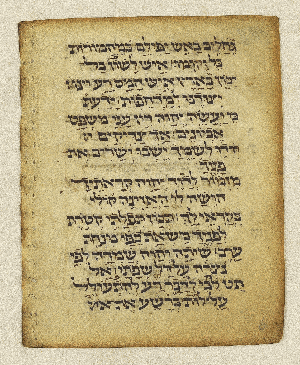 גחלים באש יפילם במהמורות
בל יקומו איש לשון בל
יכון בארץ איש חמס רע
יצודנו למדחפות ידעת
כי יעשה יהוה דין עני משפט
אביונים אך צדיקים
יודו לשמך ישבו ישרים את
פניך
מזמור לדוד יהוה קראתיך
חושה לי האזינה קולי
בקראי לך תכון תפלתי קטרת
לפניך משאת כפי מנחת
ערב שיתה יהוה שמרה לפי
נצרה על דל שפתי אל
תט לבי לדבר רע להתעולל
עללות ברשע את